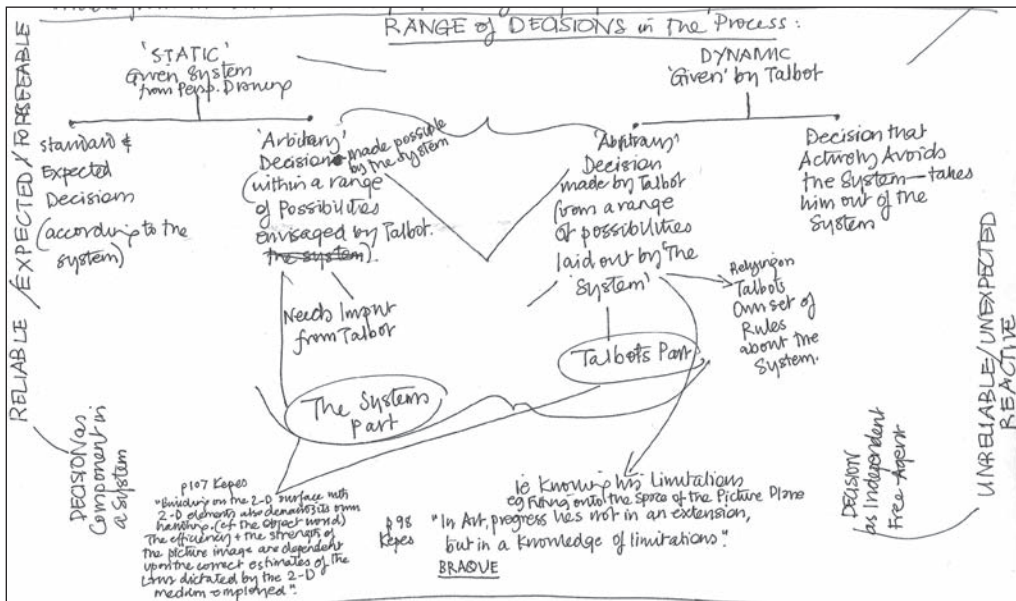 RANGE of DECISIONS in the Process:
'STATIC'
Given System
from Persp. Drawing
DYNAMIC
'Given' by Talbot
RELIABLE / EXPECTED / FORSEEABLE
Standard &
Expected
Decisions
(according to the
system)
'Arbitary'
Decision made possible
by the system
(within a range
of Possibilities
envisaged by Talbot.
the system).
'Abitrary'
Decision
made by Talbot
from a range
of possibilities
laid out by 'The
'System'
Decision that
Actively Avoids
the System—takes
him out of the
System
Needs Imput
from Talbot
Relying on
Talbots
Own set of
Rules
about the
System.
Talbots Part
The Systems
Part
DECISION as
Component in
a System
p107 Kepes
"Building on the 2-D surface with
2-D elements also demands its own
handling. (cf the object world)
The efficiency + the strength of
the picture image are dependent
upon the correct estimates of the
Laws dictated by the 2-D
medium employed".
ie Knowing his Limitations
eg fixing onto the Space of the Picture Plane
p98
Kepes
"In Art, progress lies not in an extension,
but in a Knowledge of limitations".
BRAQUE
DECISION
as Independent
Free-Agent
UNRELIABLE/UNEXPECTED
REACTIVE